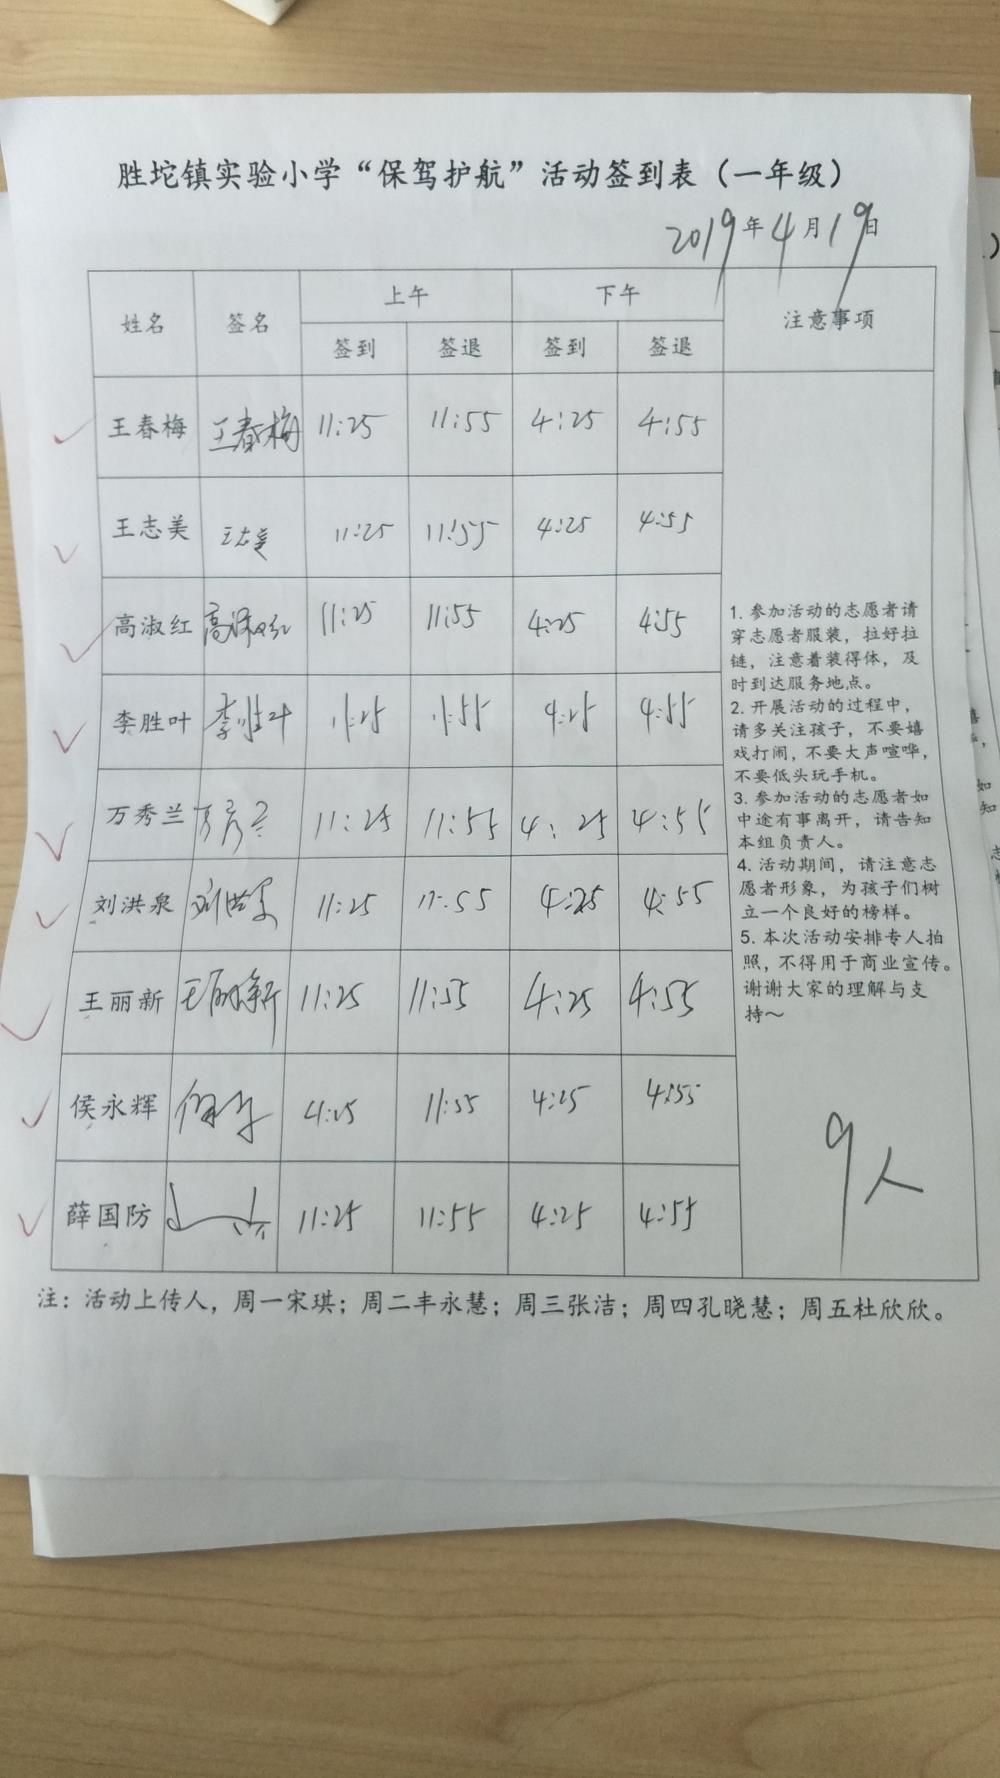 胜坨镇实验小学“保驾护航”活动签到表（一年级）
2019年4月19日
姓名 签名 上午 下午 注意事项
签到 签退 签到 签退
王春梅 王春梅 11:25 11:55 4:25 4:55
王志美 王志美 11:25 11:55 4:25 4:55
高淑红 高淑红 11:25 11:55 4:25 4:55
李胜叶 李胜叶 11:25 11:55 4:25 4:55
万秀兰 万秀兰 11:25 11:55 4:25 4:55
刘洪泉 刘洪泉 11:25 11:55 4:25 4:55
王丽新 王丽新 11:25 11:55 4:25 4:55
侯永辉 4:25 11:55 4:25 4:55
薛国防 11:25 11:55 4:25 4:55
1. 参加活动的志愿者请
穿志愿者服装，拉好拉
链，注意着装得体，及
时到达服务地点。
2. 开展活动的过程中，
请多关注孩子，不要嬉
戏打闹，不要大声喧哗，
不要低头玩手机。
3. 参加活动的志愿者如
中途有事离开，请告知
本组负责人。
4. 活动期间，请注意志
愿者形象，为孩子们树
立一个良好的榜样。
5. 本次活动安排专人拍
照，不得用于商业宣传。
谢谢大家的理解与支
持～
9人
注：活动上传人，周一宋琪；周二丰永慧；周三张洁；周四孔晓慧；周五杜欣欣。